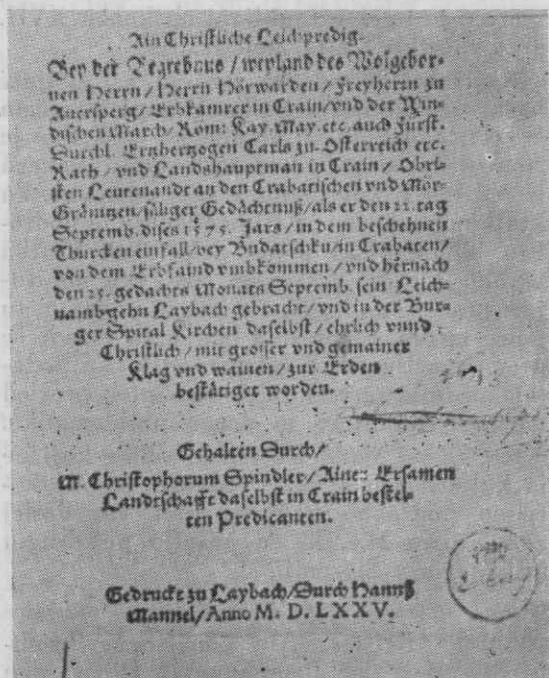 Ain Christliche Leichpredig.
Bey der Begrebnus / weyland des Wolgebor-
nen Herrn / Herrn Hörwarden / Freyherrn zu
Auersperg / Erbkamrer in Crain / vnd der Win-
dischen March / Röm: Kay. May. etc. auch Fürst.
Durchl. Ertzhertzogen Carls zu Osterreich etc.
Rath / vnd Landshauptman in Crain / Obri-
sten Leutenandt an den Crabatischen vnd Mör-
Gränitzen / säliger Gedächtnuß / als er den 22. tag
Septemb. dises 1575. Jars / in dem beschehnen
Thurcken einfall / bey Budatschku / in Crabaten /
von dem Erbfaind vmbkommen / vnd hernach
den 25. gedachts Monats Septemb. sein Leich-
namb gehn Laybach gebracht / vnd in der Bur-
ger Spital Kirchen daselbst / ehrlich vnnd
Christlich / mit grosser vnd gemainer
Klag vnd wainen / zur Erden
bestätiget worden.
Gehalten Durch /
M. Christophorum Spindler / Ainer Ersamen
Landtschafft daselbst in Crain bestel-
ten Predicanten.
Gedruckt zu Laybach / Durch Hannß
Mannel / Anno M. D. LXXV.